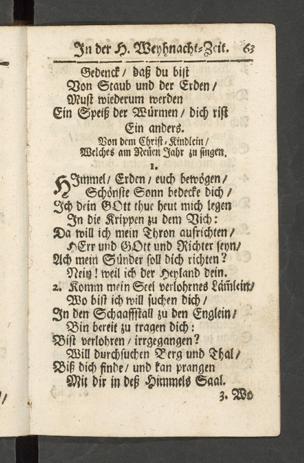 In der H. Weyhnacht-Zeit. 63
Gedenck / daß du bist
Von Staub und der Erden /
Must wiederum werden
Ein Speiß der Würmen / dich rist
Ein anders.
Von dem Christ-Kindlein /
Welches am Neüen Jahr zu singen.
1.
HImmel / Erden / euch bewögen /
Schönste Sonn bedecke dich /
Ich dein GOtt thue heut mich legen
In die Krippen zu dem Vich:
Da will ich mein Thron aufrichten /
HErr und GOtt und Richter seyn /
Ach mein Sünder soll dich richten?
Nein! weil ich der Heyland dein.
2. Komm mein Seel verlohrnes Läm̃lein /
Wo bist ich will suchen dich /
In den Schaaffstall zu den Englein /
Bin bereit zu tragen dich:
Bist verlohren / irrgegangen?
Will durchsuchen Berg und Thal /
Biß dich finde / und kan prangen
Mit dir in deß Himmels Saal.
3. Wo